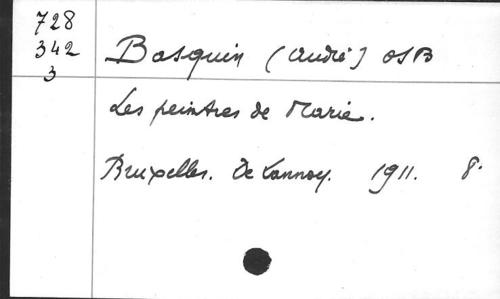 728
342
3
Basquin (André) OSB
Les peintres de Marie.
Bruxelles. De Lannoy. 1911. 8°